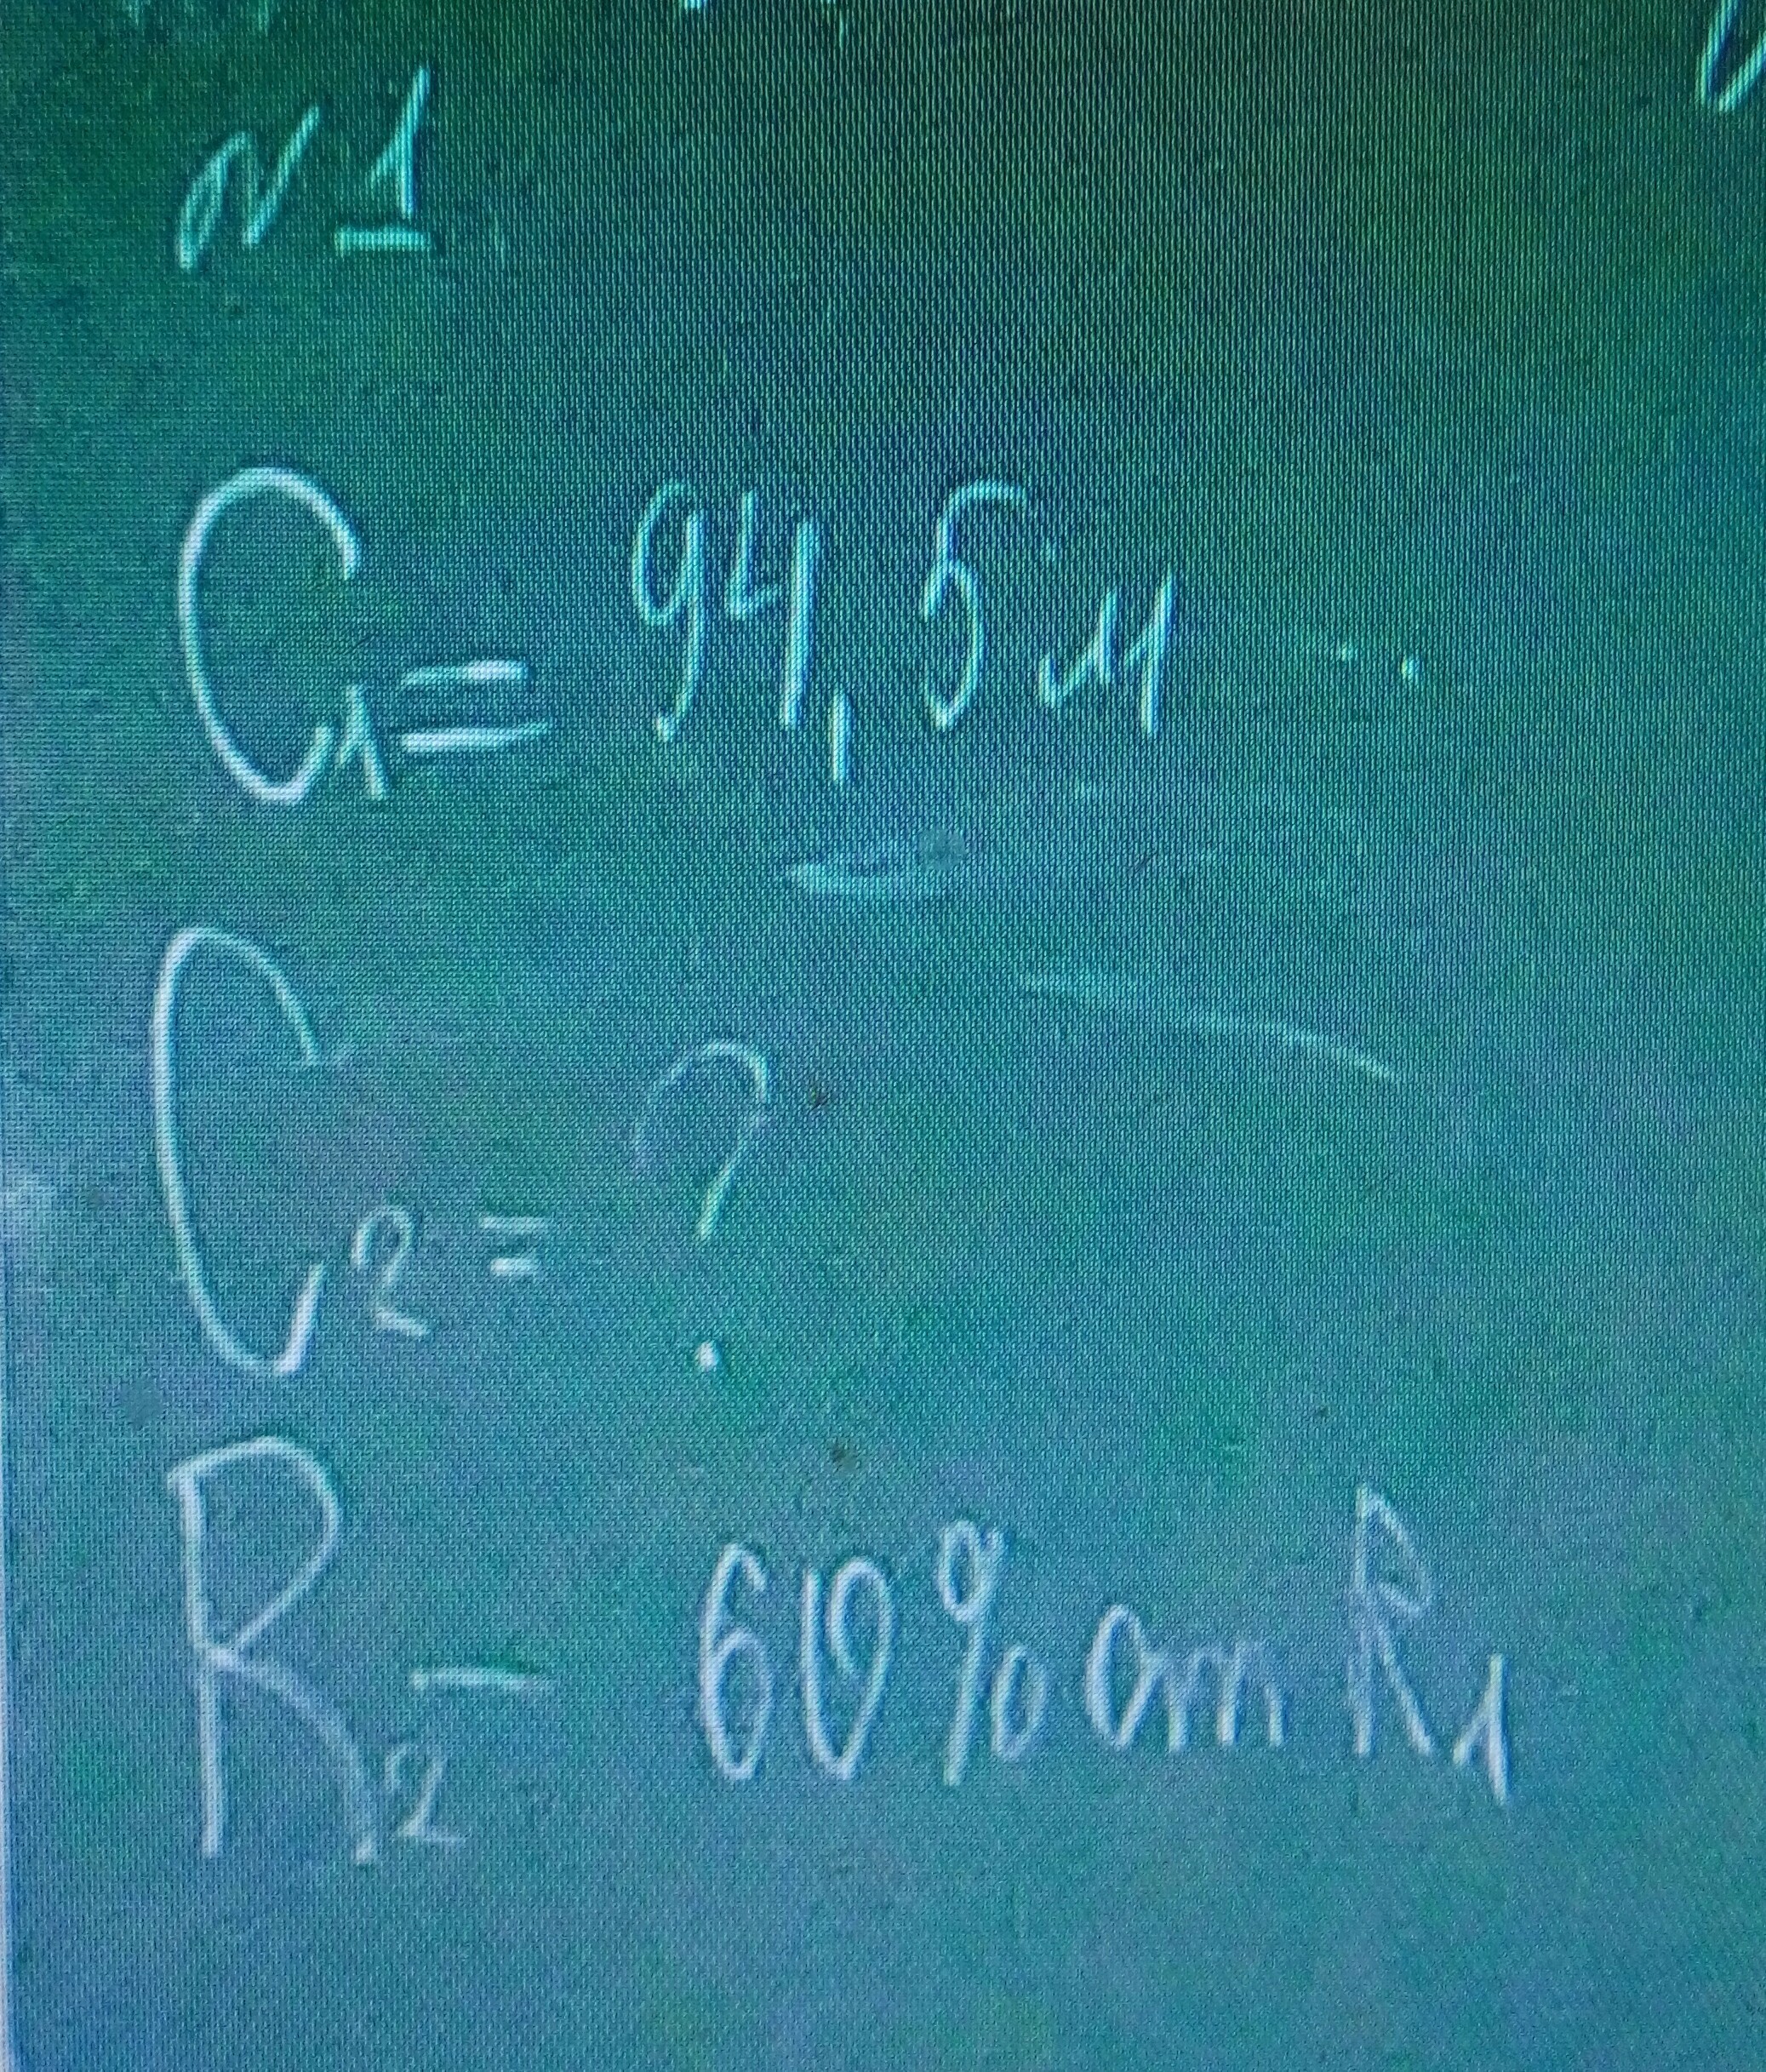 N 1
C₁ = 94,5 м
C₂ = ?
R₂ - 60% от R₁